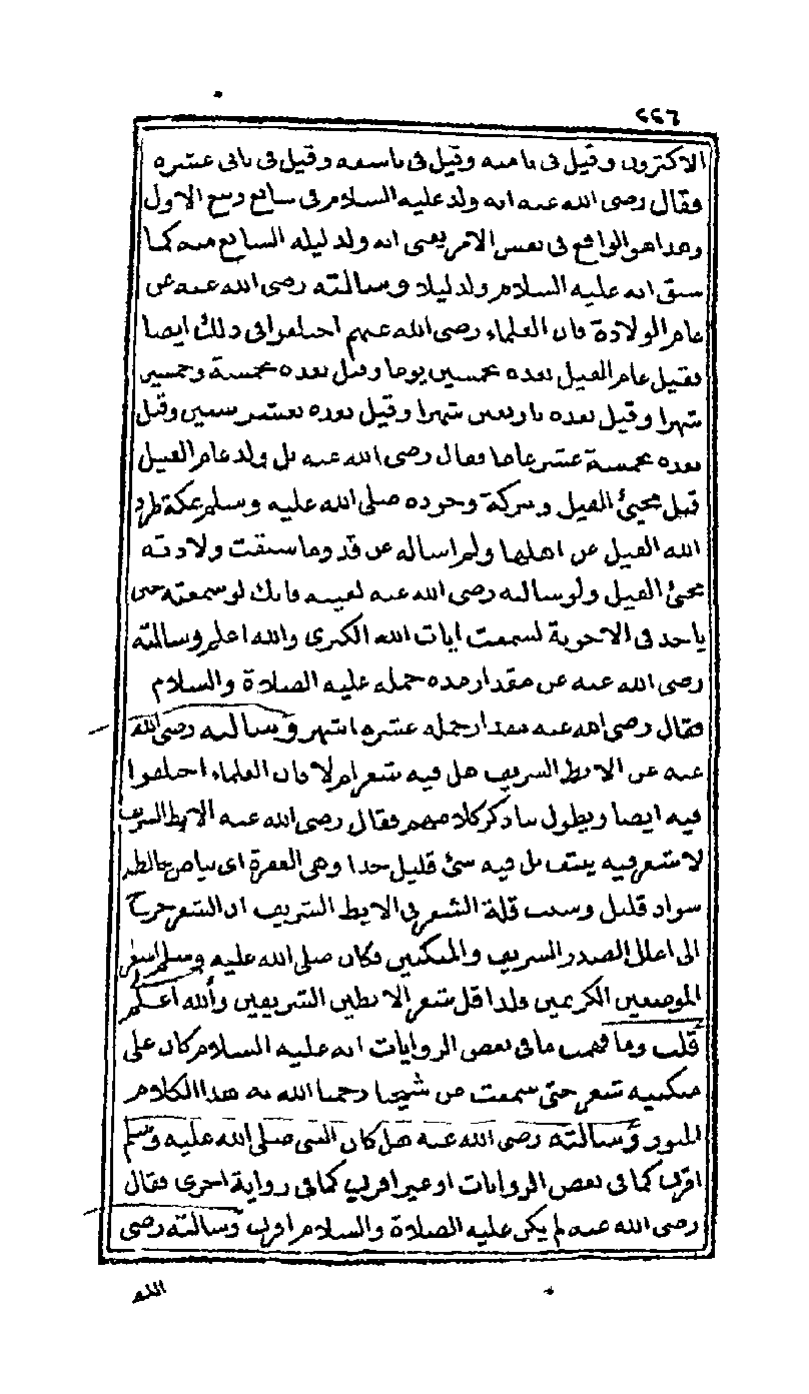 ٢٢٦
الاكثرون وقيل فى ثامنه وقيل فى تاسعه وقيل فى ثانى عشره
فقال رضى الله عنه انه ولد عليه السلام فى سابع ربيع الاول
وهذا هو الواقع فى نفس الامر يعنى انه ولد ليلة السابع منه كما
سبق انه عليه السلام ولد ليلا وسالته رضى الله عنه عن
عام الولادة فان العلماء رضى الله عنهم اختلفوا فى ذلك ايضا
فقيل عام الفيل بعده بخمسين يوما وقيل بعده بخمسة وخمسين
شهرا وقيل بعده باربعين شهرا وقيل بعده بعشر سنين وقيل
بعده بخمسة عشر عاما فقال رضى الله عنه بل ولد عام الفيل
قبل مجيئ الفيل وببركة وجوده صلى الله عليه وسلم بمكة طرد
الله الفيل عن اهلها ولم اساله عن قدر ما سبقت ولادته
مجئ الفيل ولو سالته رضى الله عنه لعينه فانك لو سمعته حين
ياخذ فى الاجوبة لسمعت ايات الله الكبرى والله اعلم وسالته
رضى الله عنه عن مقدار مدة حمله عليه الصلاة والسلام
فقال رضى الله عنه مقدار حمله عشرة اشهر وسالته رضى الله
عنه عن الابط الشريف هل فيه شعر ام لا فان العلماء اختلفوا
فيه ايضا ويطول بنا ذكر كلامهم فقال رضى الله عنه الابط الشريف
لا شعر فيه ينتف بل فيه شئ قليل جدا وهى العفرة اى بياض خالطه
سواد قليل وسبب قلة الشعر فى الابط الشريف ان الشعر خرج
الى اعلا الصدر الشريف والمنكبين فكان صلى الله عليه وسلم اشعر
الموضعين الكريمين ولذا قل شعر الابطين الشريفين والله اعلم
قلت وما فهمت ما فى بعض الروايات انه عليه السلام كان على
منكبيه شعر حتى سمعت من شيخنا رحمنا الله به هذا الكلام
المنور وسالته رضى الله عنه هل كان النبى صلى الله عليه وسلم
اقرن كما فى بعض الروايات او غير اقرن كما فى رواية اخرى فقال
رضى الله عنه لم يكن عليه الصلاة والسلام اقرن وسالته رضى
الله